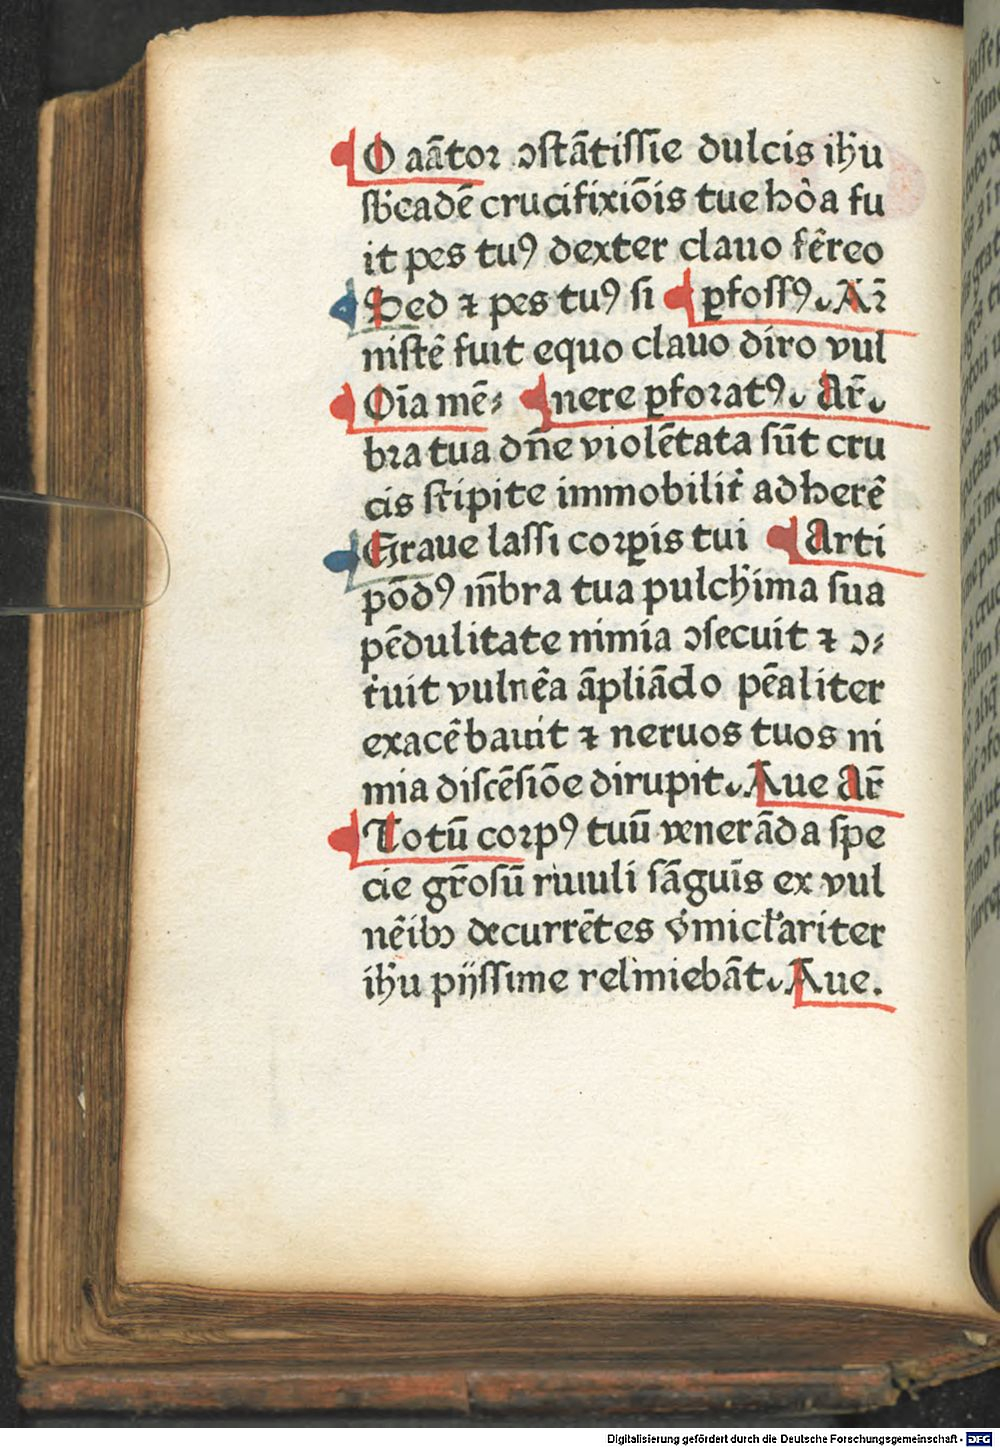 O aãtoꝛ ↄſtãtiſſĩe dulcis ih̃u
ſb̾eadẽ crucifixiõis tue hòa fu
it pes tuꝰ dexter clauo fẽreo
Sed ⁊ pes tuꝰ ſi ꝑfoſſꝰ. Ar̃
niſtẽ fuit equo clauo diro vul
Oĩa mẽ⸗ nere ꝑfoꝛatꝰ. Ar̃.
bꝛa tua dñe violẽtata ſũt cru
cis ſtipite immobilit̾ adherẽ
Graue laſſi coꝛꝑis tui Arti
põdꝰ m̃bra tua pulch̾ima ſua
pẽdulitate nimia ↄſecuit ⁊ ↄ⸗
t̾uit vulnẽa ãpliãdo pẽaliter
exacẽbauit ⁊ neruos tuos ni
mia diſcẽſiõe dirupit. Aue Ar̃
Totũ coꝛpꝰ tuũ venerãda ſpe
cie gr̃oſũ riuuli ſãguĩs ex vul
nẽibꝫ decurrẽtes v̾micl̾ariter
ih̃u pijſſime relĩniebãt. Aue.
Digitalisierung gefördert durch die Deutsche Forschungsgemeinschaft - DFG